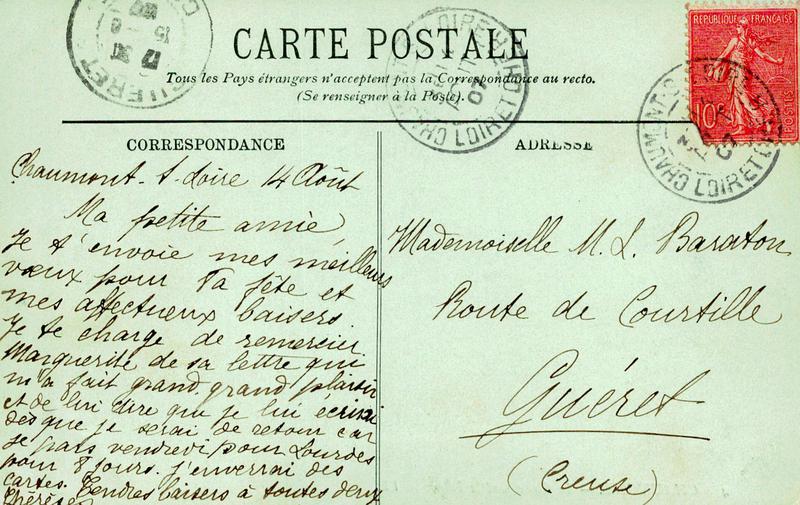 CARTE POSTALE
Tous les Pays étrangers n'acceptent pas la Correspondance au recto.
(Se renseigner à la Poste).
RÉPUBLIQUE FRANÇAISE
10c
POSTES
CHAUMONT LOIR ET CHER
07
GUÉRET
CORRESPONDANCE
Chaumont-s-Loire 14 Août
Ma petite amie,
Je t'envoie mes meilleurs
vœux pour ta fête et
mes affectueux baisers.
Je te charge de remercier
Marguerite de sa lettre qui
m'a fait grand, grand plaisir
et de lui dire que je lui écrirai
dès que je serai de retour car
je pars vendredi pour Lourdes
pour 8 jours. j'enverrai des
cartes. Tendres baisers à toutes deux
Thérèse
ADRESSE
Mademoiselle M. L. Baraton
Route de Courtille
Guéret
(Creuse)